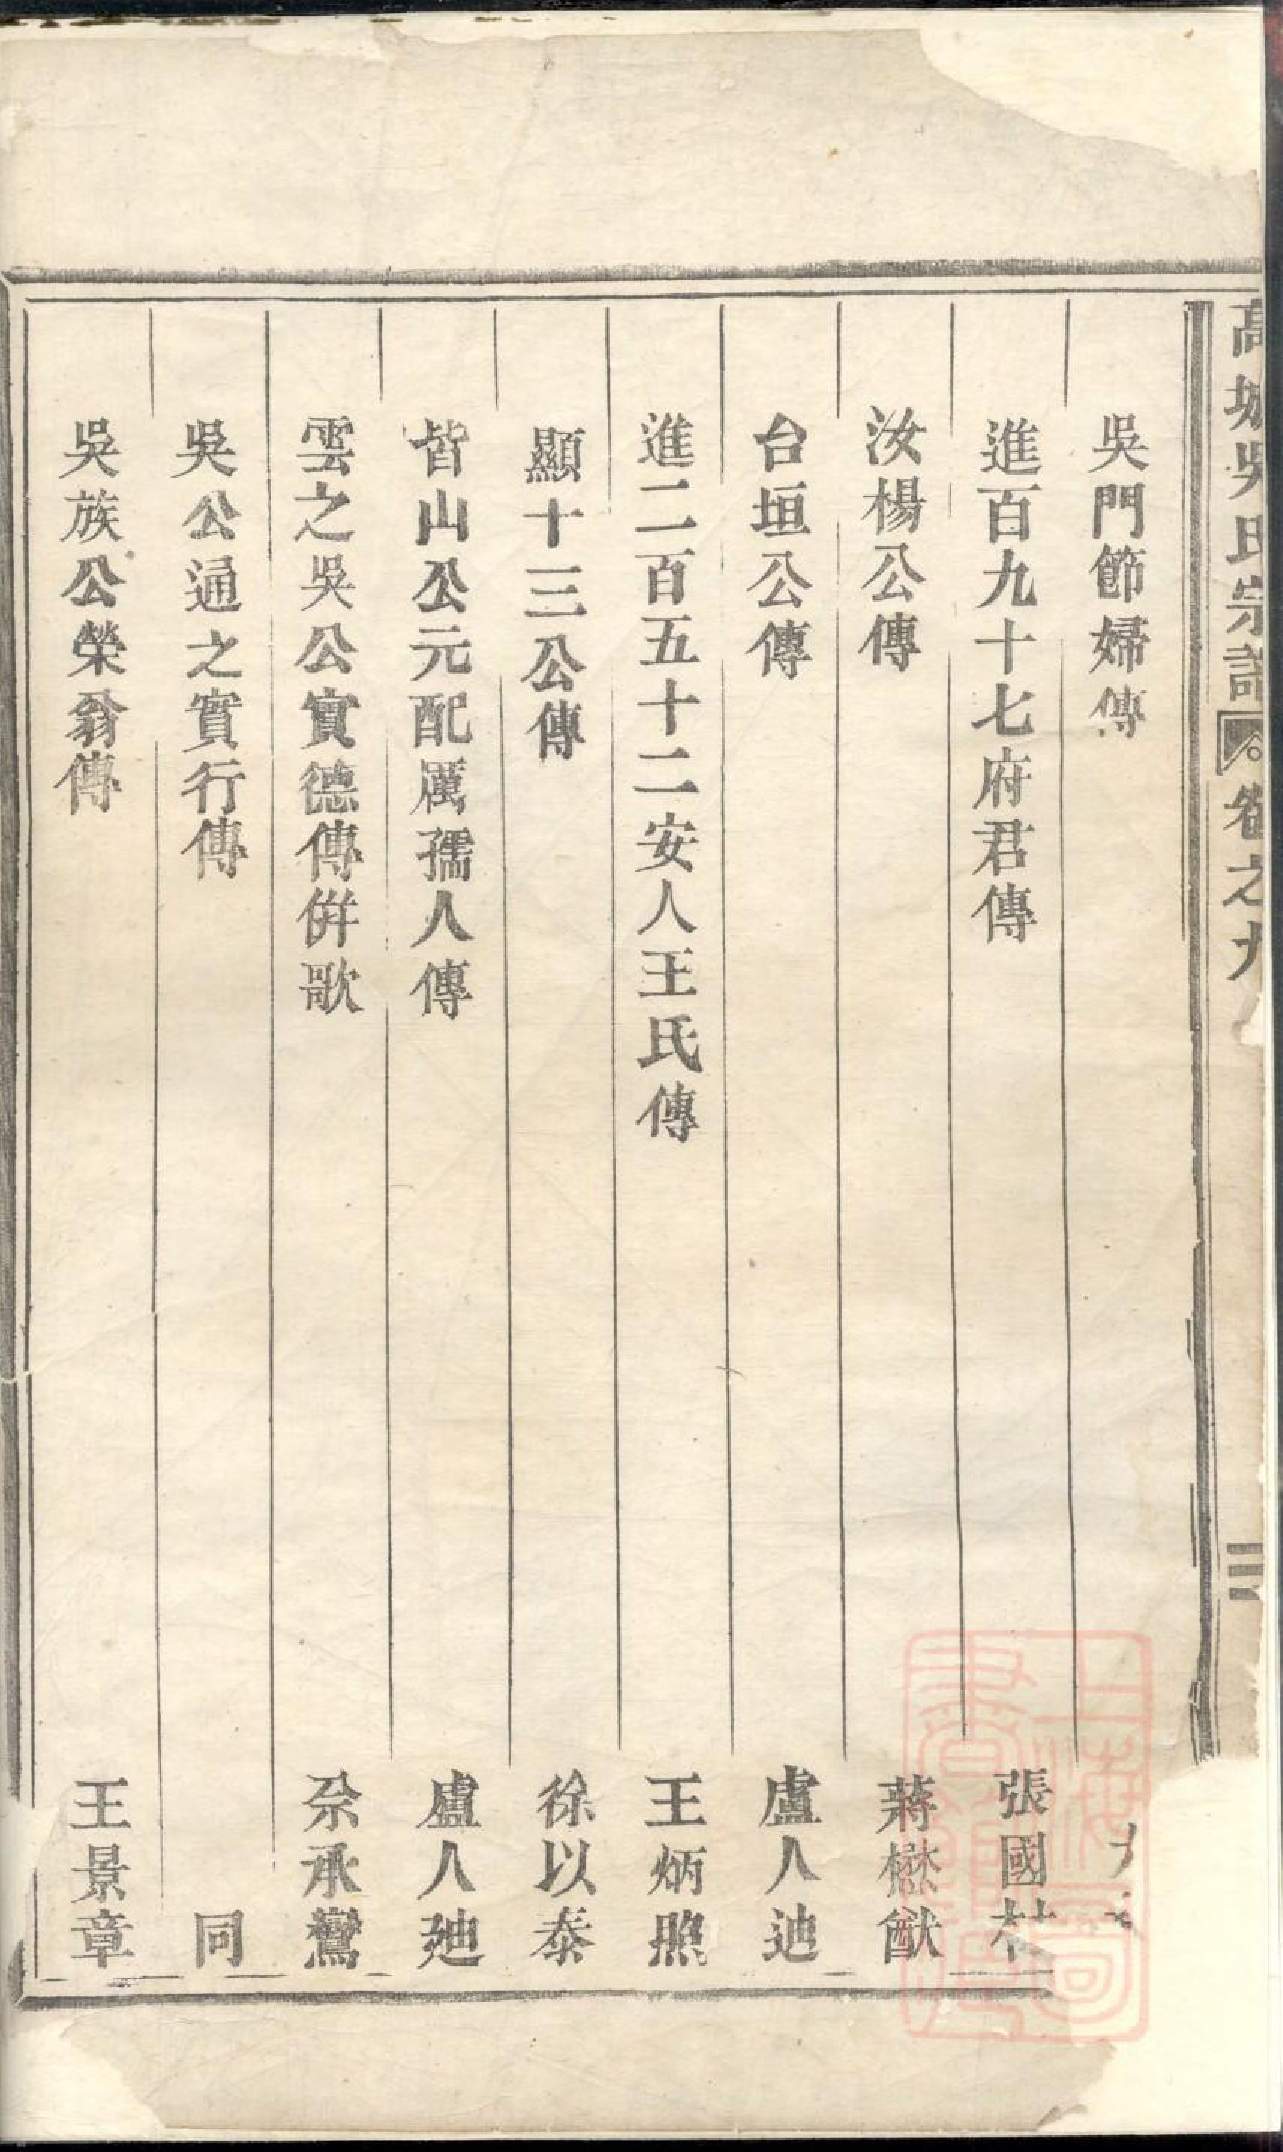 高城吳氏宗譜 卷之九 三
吳門節婦傳
進百九十七府君傳 張國
汝楊公傳 蔣懋猷
台垣公傳 盧人迪
進二百五十二安人王氏傳 王炳照
顯十三公傳 徐以泰
皆山公元配厲孺人傳 盧人廸
雲之吳公實德傳併歌 余承鸞
吳公通之實行傳 同
吳族公榮翁傳 王景章
上海圖書館藏